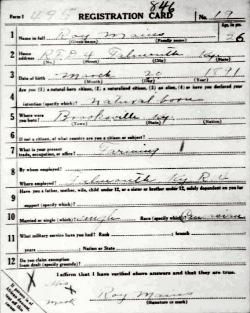 846
Form 1 REGISTRATION CARD No. 19
1 Name in full Roy Maines Age, in yrs. 26
(Given name) (Family name)
2 Home address R.F.D. Falmouth Ky.
(No.) (Street) (City) (State)
3 Date of birth March 20 1891
(Month) (Day) (Year)
4 Are you (1) a natural-born citizen, (2) a naturalized citizen, (3) an alien, (4) or have you declared your
intention (specify which)? Natural born
5 Where were you born? Brooksville Ky
(Town) (State) (Nation)
6 If not a citizen, of what country are you a citizen or subject?
7 What is your present trade, occupation, or office? Farming
8 By whom employed?
Where employed? Falmouth Ky R.
9 Have you a father, mother, wife, child under 12, or a sister or brother under 12, solely dependent on you for
support (specify which)?
10 Married or single (which)? Single Race (specify which)?
11 What military service have you had? Rank ; branch
years ; Nation or State
12 Do you claim exemption from draft (specify grounds)?
I affirm that I have verified above answers and that they are true.
Roy Maines
(Signature or mark)